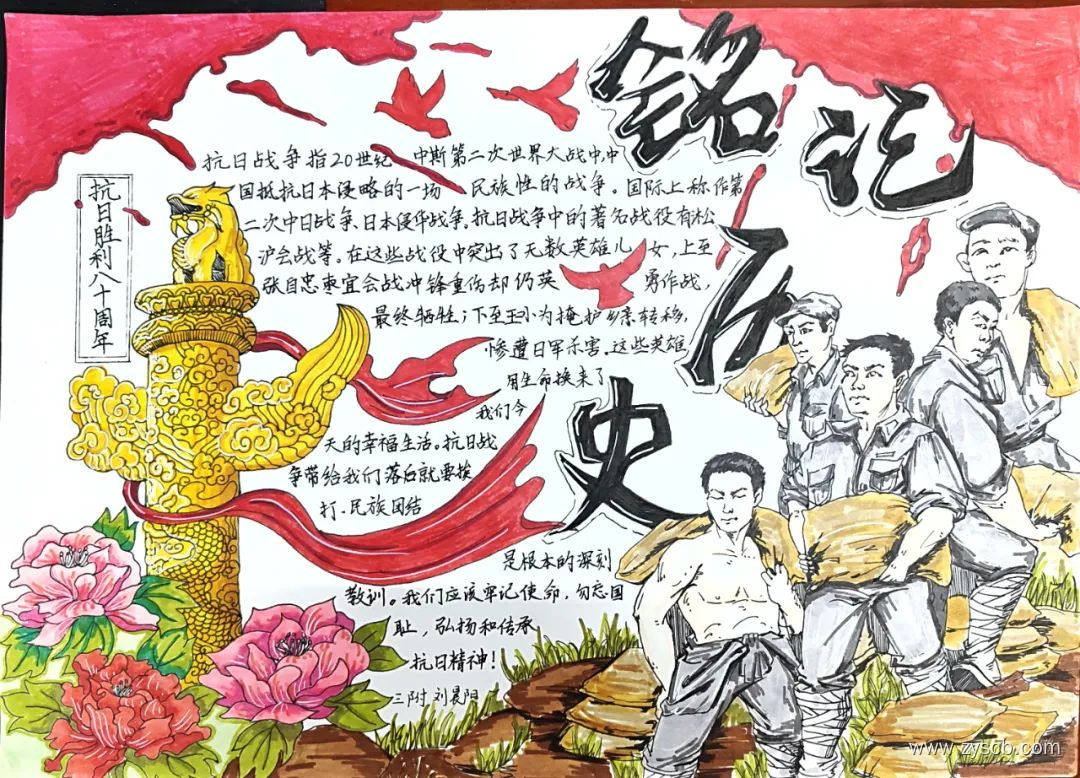 铭记
历
史
抗日胜利八十周年
抗日战争指20世纪 中斯第二次世界大战中中
国抵抗日本侵略的一场 民族性的战争。国际上称作第
二次中日战争、日本侵华战争。抗日战争中的著名战役有淞
沪会战等。在这些战役中突出了无数英雄儿 女，上至
张自忠枣宜会战中锋重伤却仍英 勇作战，
最终牺牲；下至王小为掩护乡亲转移，
惨遭日军杀害。这些英雄
用生命换来了
我们今
天的幸福生活。抗日战
争带给我们落后就要挨
打、民族团结
是根本的深刻
教训。我们应该牢记使命，勿忘国
耻，弘扬和传承
抗日精神！
三附 刘晨阳
www.zyscb.com